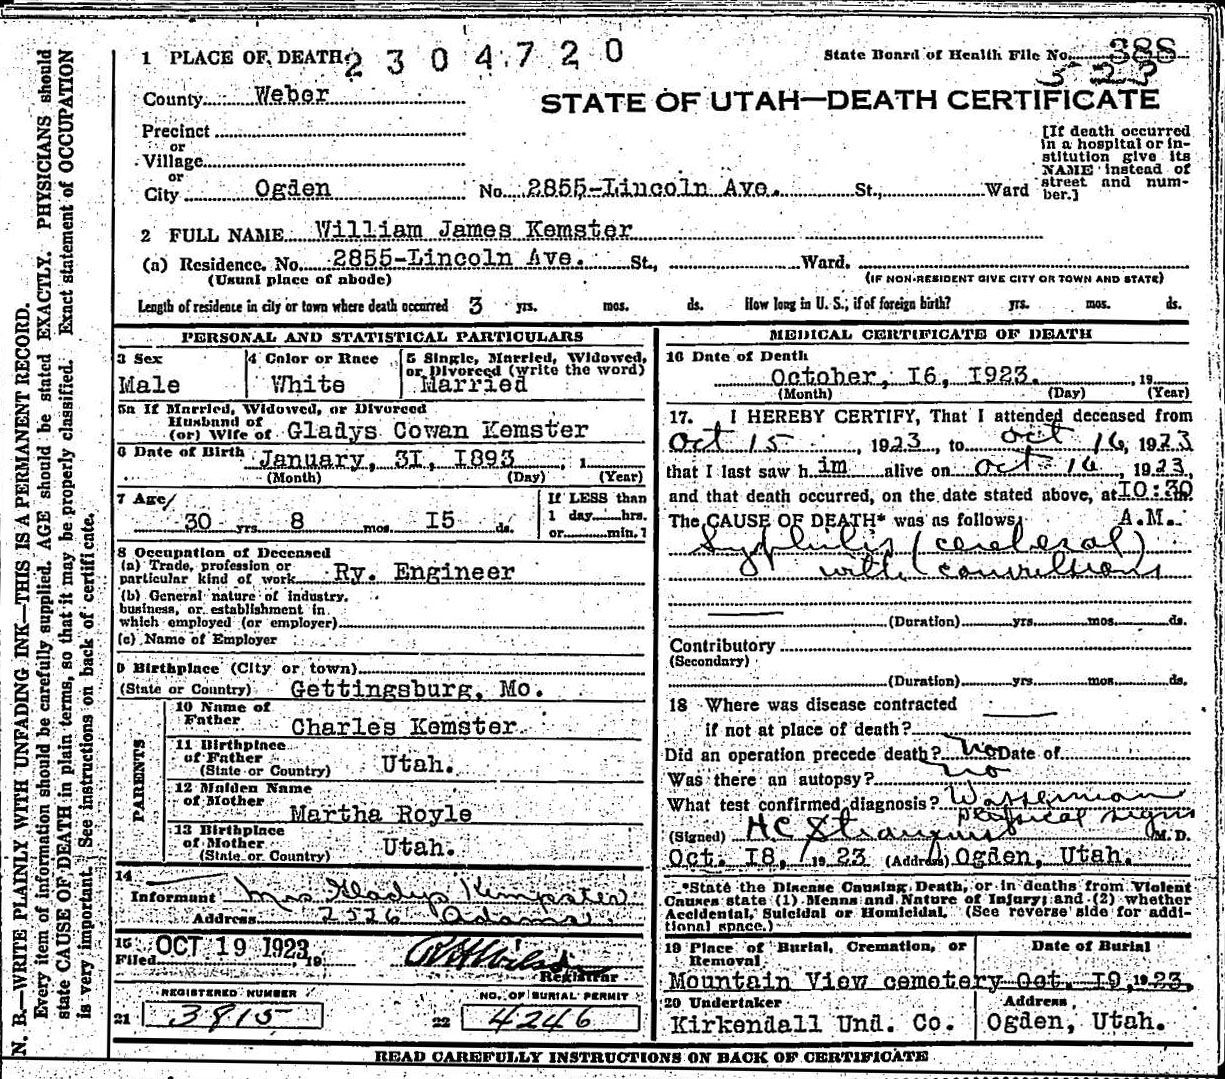 N. B.—WRITE PLAINLY WITH UNFADING INK—THIS IS A PERMANENT RECORD.
Every item of information should be carefully supplied. AGE should be stated EXACTLY. PHYSICIANS should
state CAUSE OF DEATH in plain terms, so that it may be properly classified. Exact statement of OCCUPATION
is very important. See instructions on back of certificate.
1 PLACE OF DEATH
2304720
State Board of Health File No. 388
323
County Weber
STATE OF UTAH—DEATH CERTIFICATE
Precinct
or
Village
or
City Ogden No. 2855-Lincoln Ave. St., Ward
[If death occurred
in a hospital or in-
stitution give its
NAME instead of
street and num-
ber.]
2 FULL NAME William James Kemster
(a) Residence. No. 2855-Lincoln Ave. St., Ward.
(Usual place of abode) (IF NON-RESIDENT GIVE CITY OR TOWN AND STATE)
Length of residence in city or town where death occurred 3 yrs. mos. ds. How long in U. S.; if of foreign birth? yrs. mos. ds.
PERSONAL AND STATISTICAL PARTICULARS
3 Sex
Male
4 Color or Race
White
5 Single, Married, Widowed,
or Divorced (write the word)
Married
5a If Married, Widowed, or Divorced
Husband of
(or) Wife of Gladys Cowan Kemster
6 Date of Birth January, 31, 1893 , 1
(Month) (Day) (Year)
7 Age
30 yrs. 8 mos. 15 ds.
If LESS than
1 day hrs.
or min.?
8 Occupation of Deceased
(a) Trade, profession or
particular kind of work Ry. Engineer
(b) General nature of industry,
business, or establishment in
which employed (or employer)
(c) Name of Employer
9 Birthplace (City or town)
(State or Country) Gettingsburg, Mo.
PARENTS
10 Name of
Father Charles Kemster
11 Birthplace
of Father
(State or Country) Utah.
12 Maiden Name
of Mother
Martha Royle
13 Birthplace
of Mother
(State or Country) Utah.
14
Informant Mrs Gladys Kempster
Address 2536 Adams
15 OCT 19 1923
Filed , 19
Registrar
REGISTERED NUMBER
21 3915
NO. OF BURIAL PERMIT
22 4246
MEDICAL CERTIFICATE OF DEATH
16 Date of Death
October, 16, 1923. , 19
(Month) (Day) (Year)
17. I HEREBY CERTIFY, That I attended deceased from
Oct 15 , 1923, to Oct 16, 1923
that I last saw him alive on Oct 16, 1923,
and that death occurred, on the date stated above, at 10:30 m.
The CAUSE OF DEATH* was as follows: A.M.
Syphilis (cerebral)
with convulsions
(Duration) yrs. mos. ds.
Contributory
(Secondary)
(Duration) yrs. mos. ds.
18 Where was disease contracted
if not at place of death?
Did an operation precede death? no Date of
Was there an autopsy? no
What test confirmed diagnosis? Wasserman
physical signs
(Signed) HC Stranquist M. D.
Oct. 18, 19 23 (Address) Ogden, Utah.
*State the Disease Causing Death, or in deaths from Violent
Causes state (1) Means and Nature of Injury; and (2) whether
Accidental, Suicidal or Homicidal. (See reverse side for addi-
tional space.)
19 Place of Burial, Cremation, or
Removal
Date of Burial
Mountain View cemetery Oct. 19, 1923.
20 Undertaker
Kirkendall Und. Co.
Address
Ogden, Utah.
READ CAREFULLY INSTRUCTIONS ON BACK OF CERTIFICATE